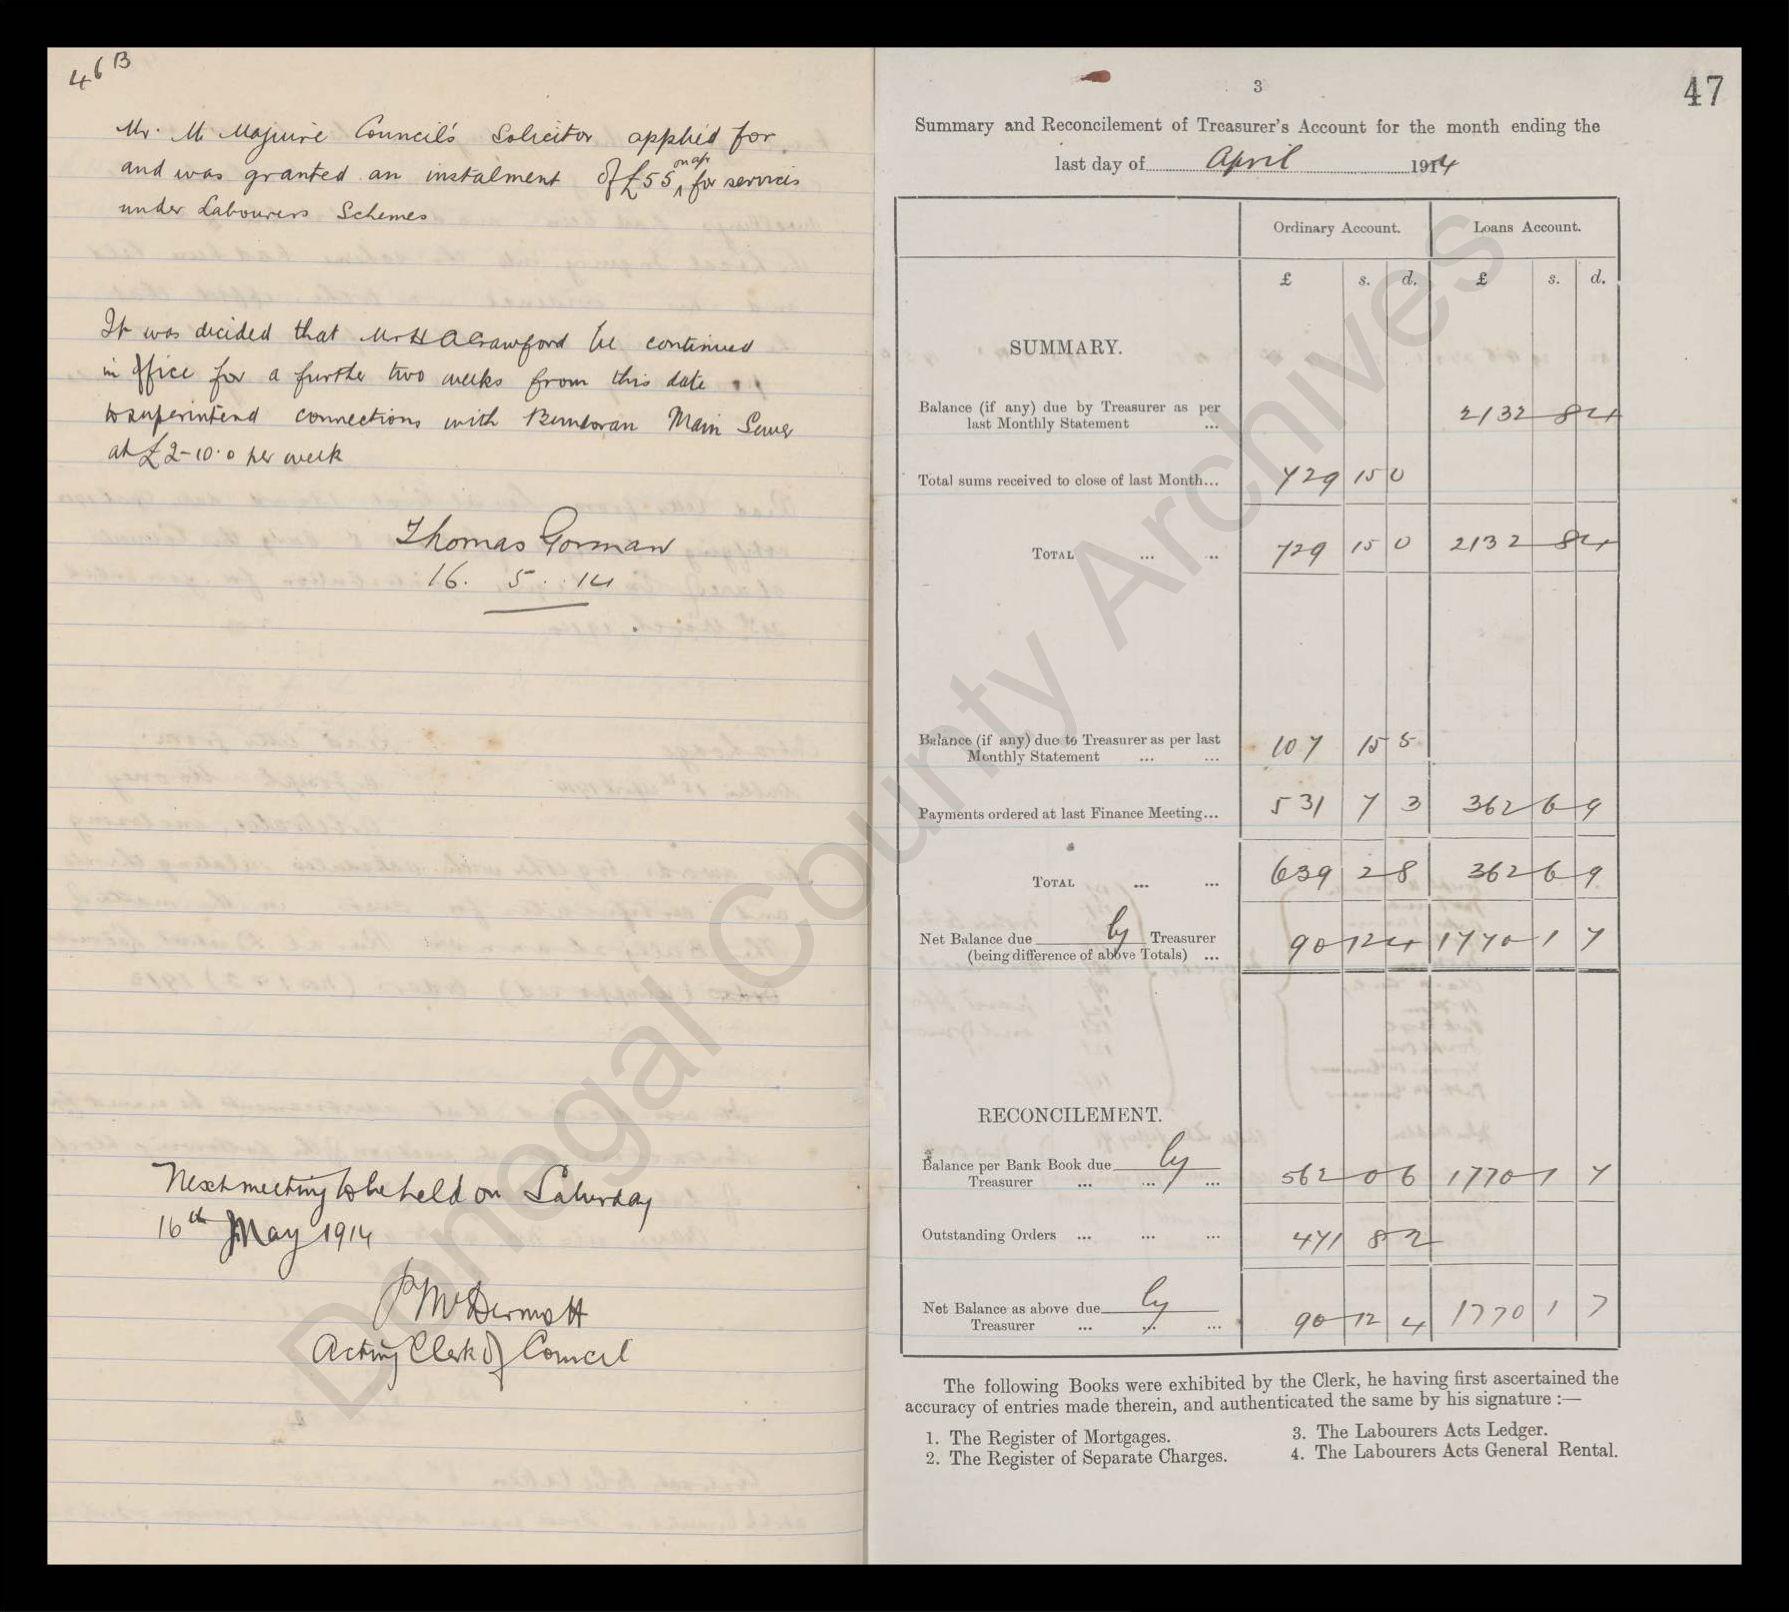 46B
Mr. M Maguire Council's Solicitor applied for
and was granted an instalment of £55 on a/c for services
under Labourers Schemes
It was decided that Mr H A Crawford be continued
in office for a further two weeks from this date
to superintend connections with Bundoran Main Sewer
at £2-10-0 per week
Thomas Gorman
16. 5. 14
Next meeting to be held on Saturday
16th May 1914
P McDermott
Acting Clerk of Council
3
47
Summary and Reconcilement of Treasurer's Account for the month ending the
last day of April 1914
Ordinary Account. Loans Account.
£ s. d. £ s. d.
SUMMARY.
Balance (if any) due by Treasurer as per
last Monthly Statement ... 2132 8 4
Total sums received to close of last Month... 729 15 0
TOTAL ... ... 729 15 0 2132 8 4
Balance (if any) due to Treasurer as per last
Monthly Statement ... ... 107 15 5
Payments ordered at last Finance Meeting... 531 7 3 362 6 9
TOTAL ... ... 639 2 8 362 6 9
Net Balance due by Treasurer
(being difference of above Totals) ... 90 12 4 1770 1 7
RECONCILEMENT.
Balance per Bank Book due by
Treasurer ... ... ... 562 0 6 1770 1 7
Outstanding Orders ... ... ... 471 8 2
Net Balance as above due by
Treasurer ... ... ... 90 12 4 1770 1 7
The following Books were exhibited by the Clerk, he having first ascertained the
accuracy of entries made therein, and authenticated the same by his signature :—
1. The Register of Mortgages.
2. The Register of Separate Charges.
3. The Labourers Acts Ledger.
4. The Labourers Acts General Rental.
Donegal County Archives